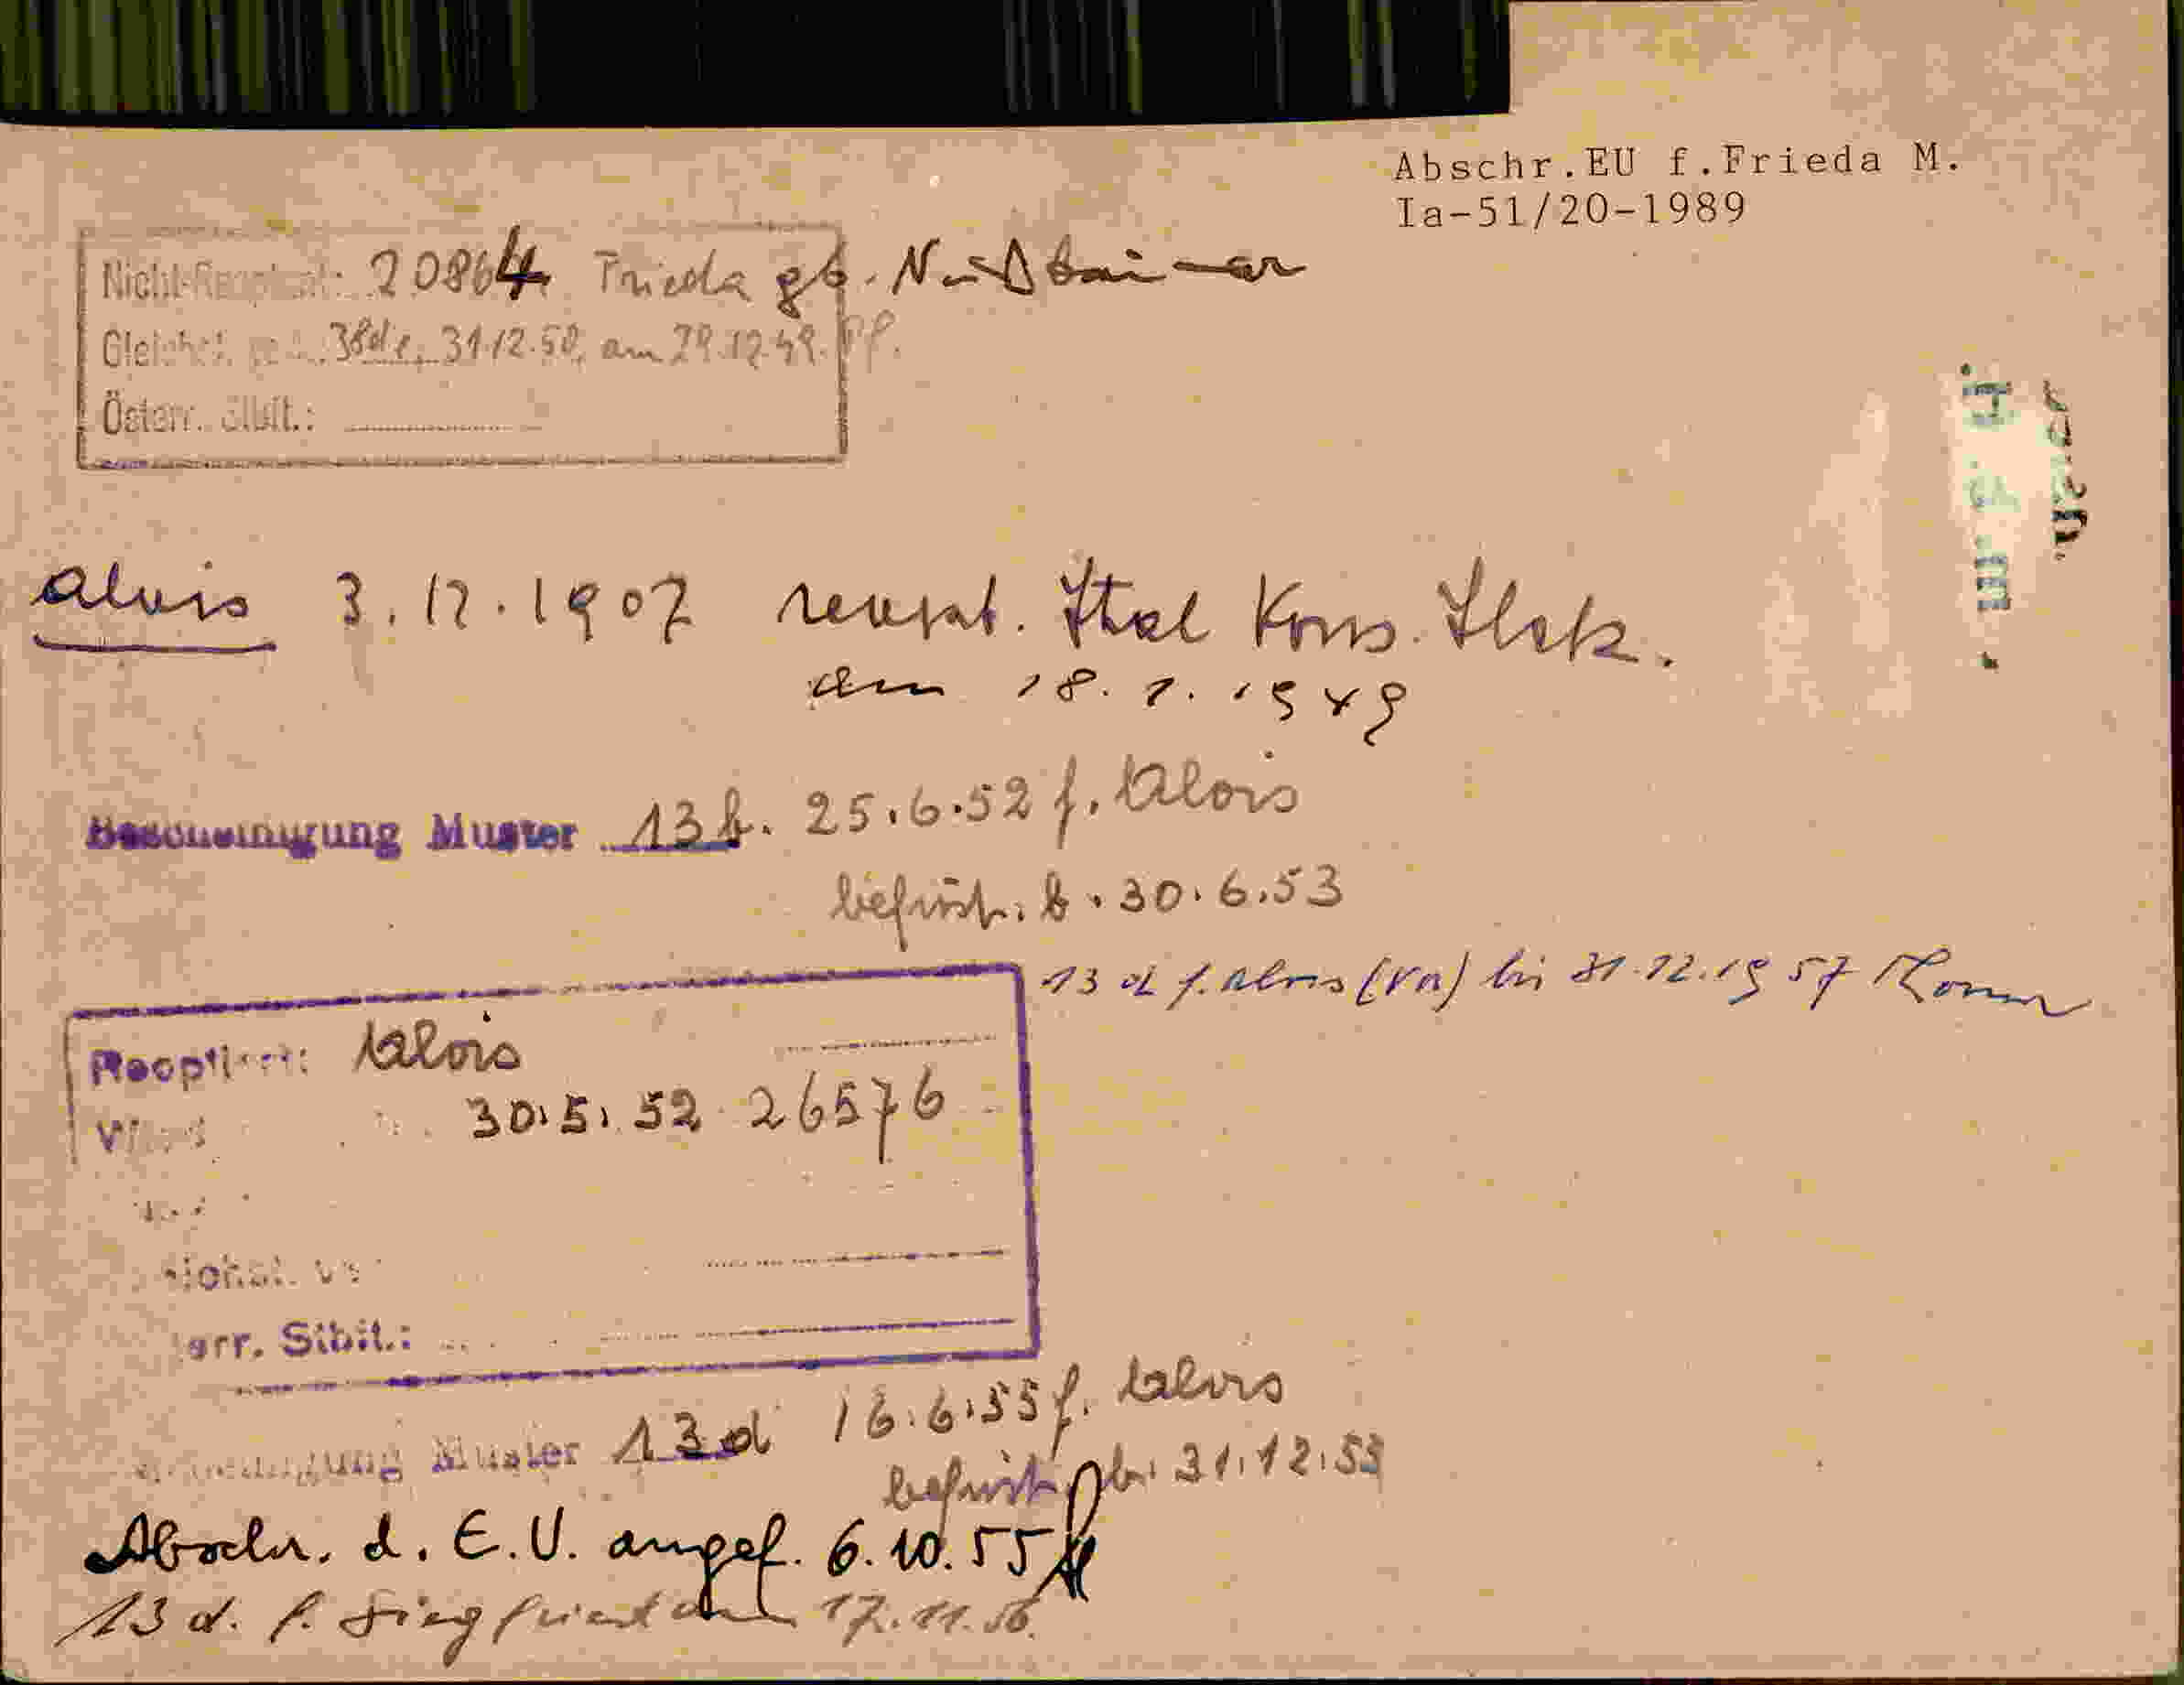 Abschr.EU f.Frieda M.
Ia-51/20-1989
20864 Frieda gb. Nußbaumer
31.12.50, am 29.12.49.
Österr. Sibit.:
Alois 3.12.1907 reoptat. Ital Kons. Ibk.
am 18.1.1949
Bescheinigung Muster 13b. 25.6.52 f. Alois
befrist. b. 30.6.53
13 d f. Alois (VN) bis 31.12.1957
Reoptiert: Alois
30.5.52 26576
err. Sibit.:
Muster 13d 16.6.55 f. Alois
befrist. bis 31.12.55
Abschr. d. E.U. angef. 6.10.55
13 d. f. Siegfried am 17.11.56.